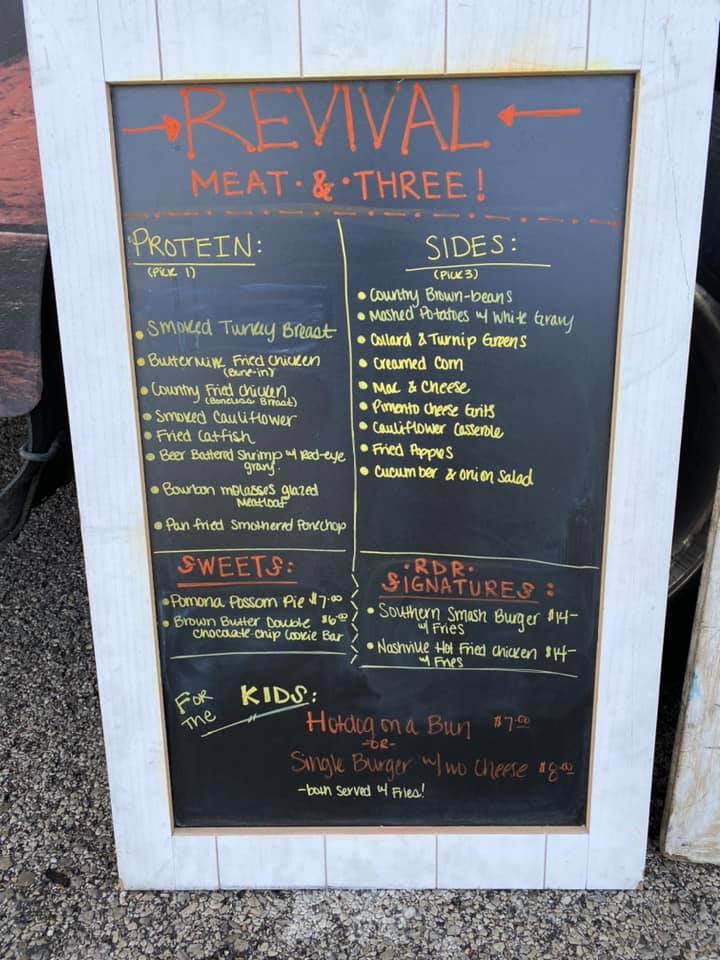 REVIVAL
MEAT • & • THREE!
PROTEIN:
(Pick 1)
• Smoked Turkey Breast
• Buttermilk Fried Chicken
(Bone-in)
• Country Fried Chicken
(Boneless Breast)
• Smoked Cauliflower
• Fried Catfish
• Beer Battered Shrimp w/ Red-eye
gravy
• Bourbon molasses glazed
Meatloaf
• Pan fried Smothered Porkchop
SIDES:
(Pick 3)
• Country Brown-beans
• Mashed Potatoes w/ White Gravy
• Collard & Turnip Greens
• Creamed Corn
• Mac & Cheese
• Pimento Cheese Grits
• Cauliflower Casserole
• Fried Apples
• Cucumber & Onion Salad
SWEETS:
• Pomona Possom Pie $7.00
• Brown Butter Double $6.00
Chocolate-chip Cookie Bar
• RDR •
SIGNATURES:
• Southern Smash Burger $14-
w/ Fries
• Nashville Hot Fried Chicken $14-
w/ Fries
FOR
THE
KIDS:
Hotdog on a Bun $7.00
-OR-
Single Burger w/wo Cheese $8.00
-both served w/ Fries!